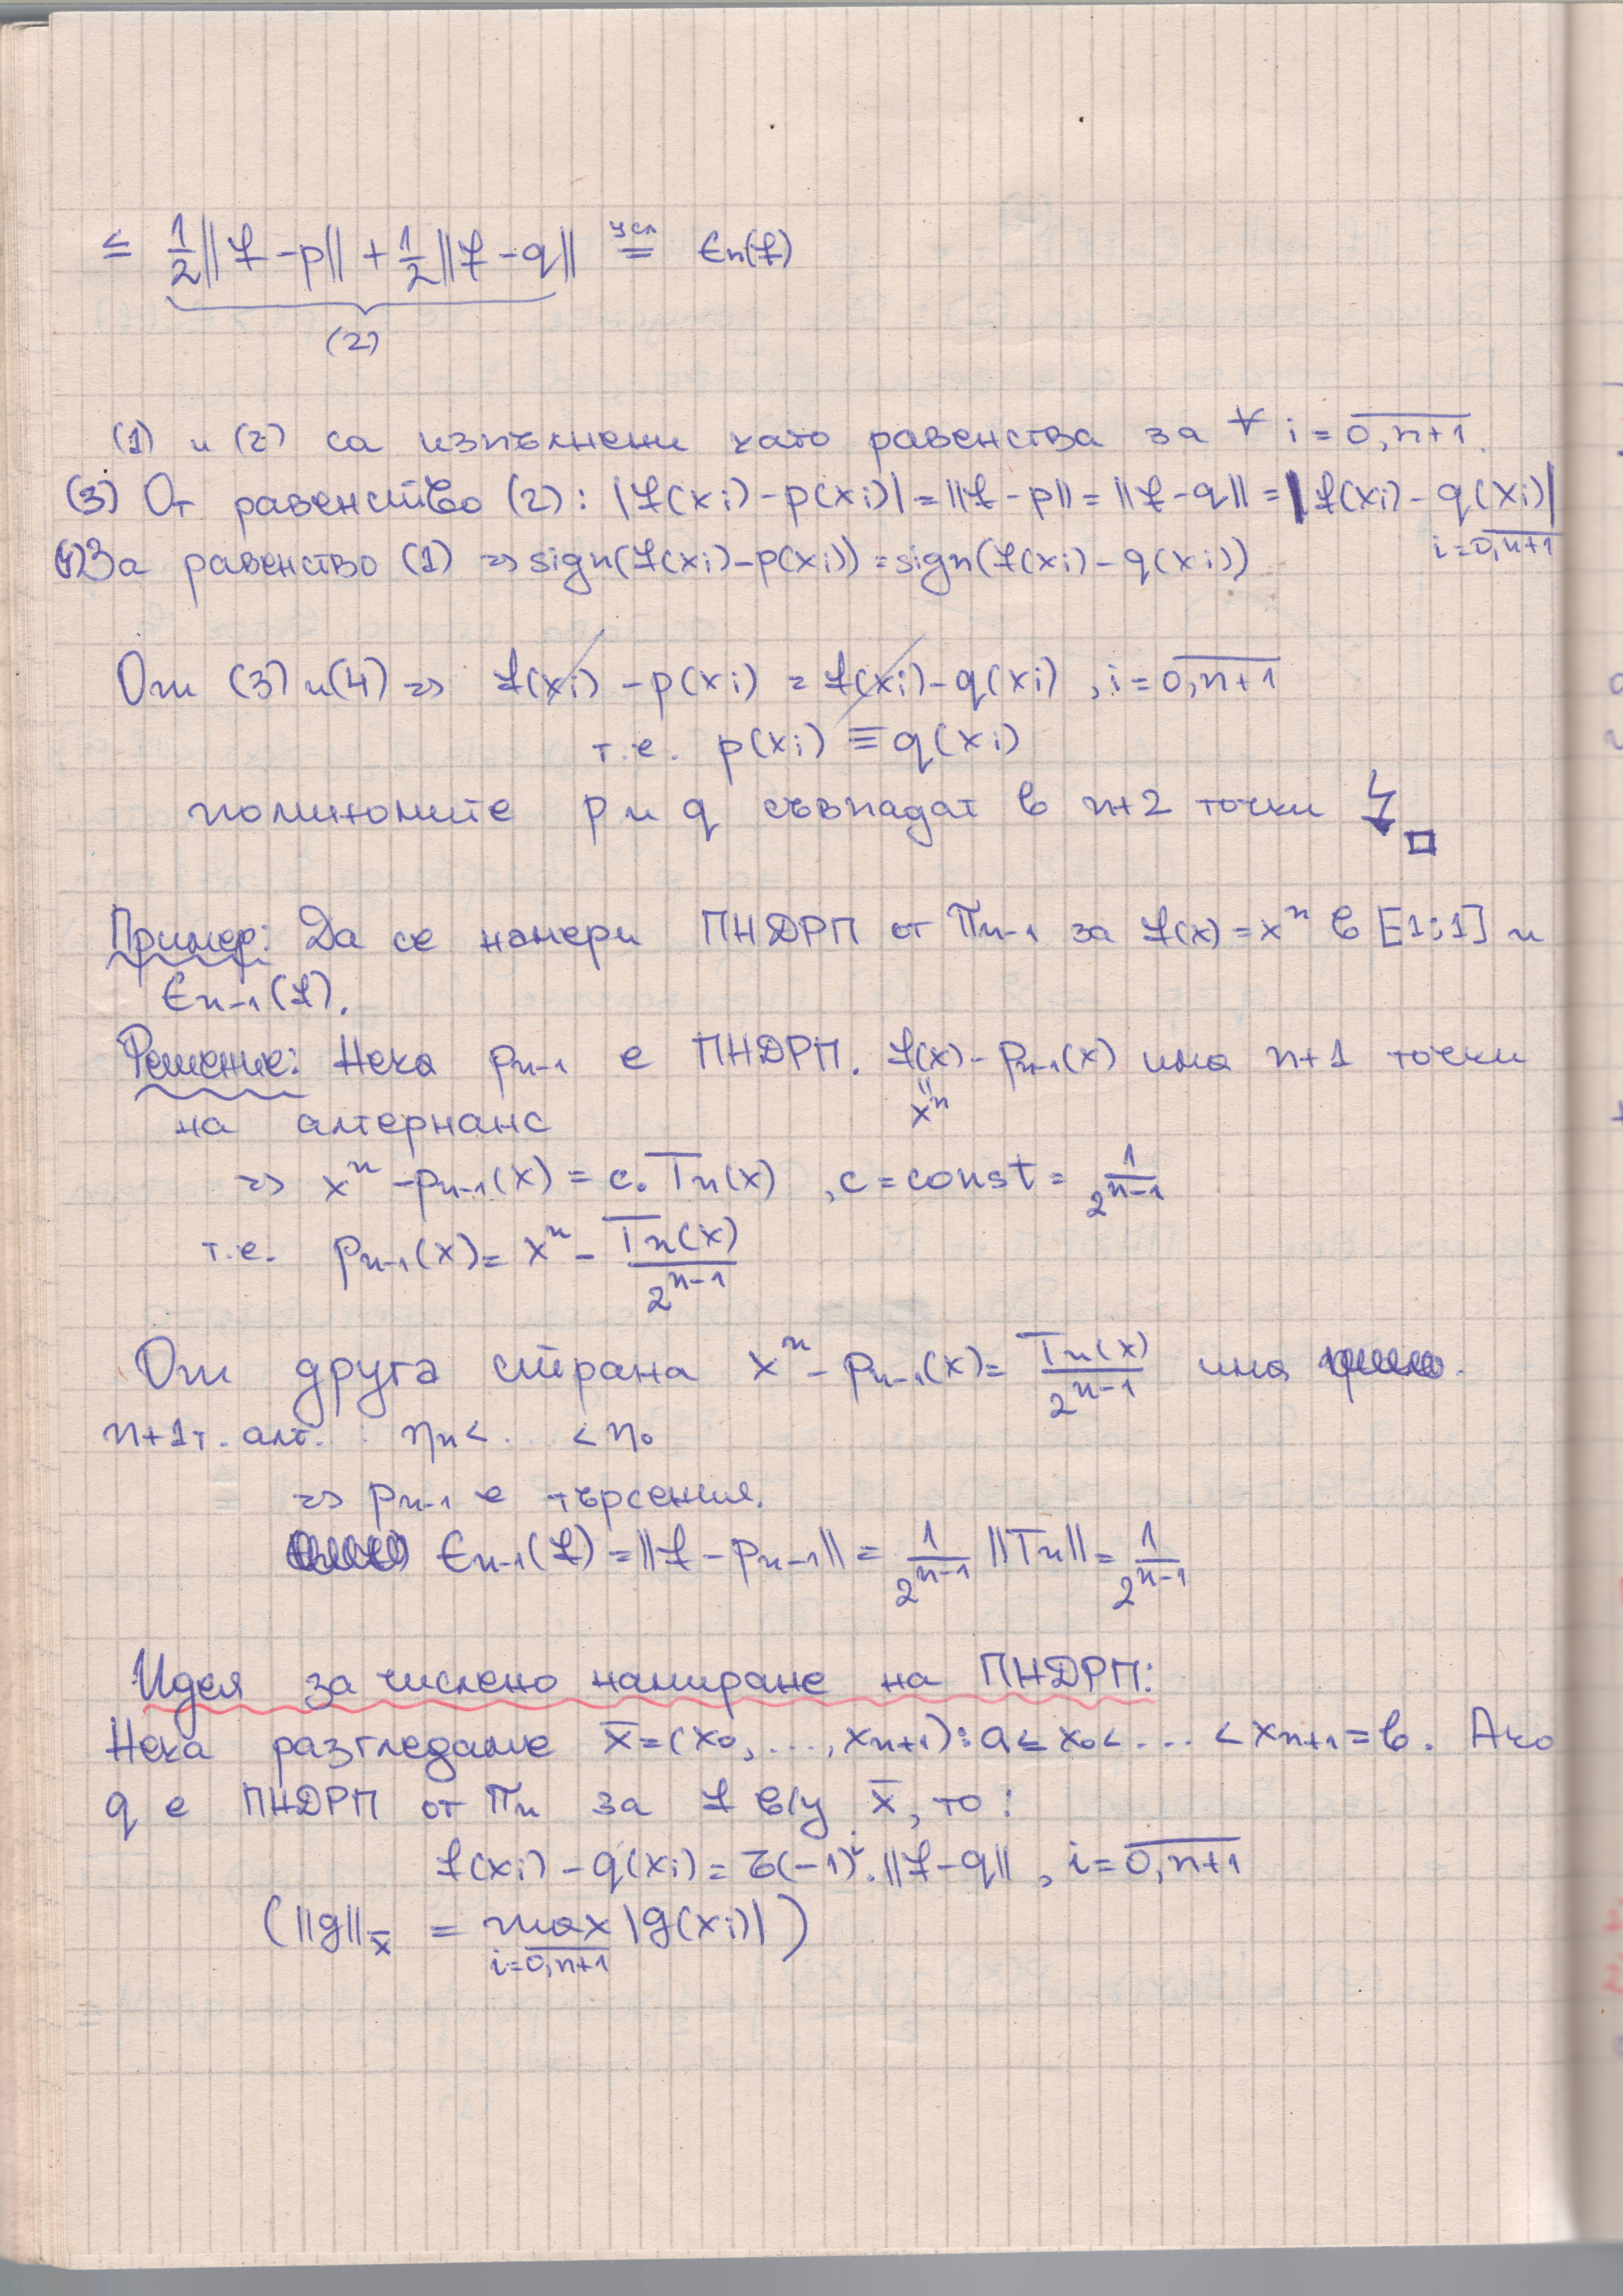 ≤ 1/2||f - p|| + 1/2||f - q|| усл = En(f)
(2)
(1) и (2) са изпълнени като равенства за ∀ i = 0,n+1.
(3) От равенство (2): |f(xi) - p(xi)| = ||f - p|| = ||f - q|| = |f(xi) - q(xi)|
i = 0,n+1
(4) За равенство (1) => sign(f(xi) - p(xi)) = sign(f(xi) - q(xi))
От (3) и (4) => f(xi) - p(xi) = f(xi) - q(xi), i = 0,n+1
т.е. p(xi) ≡ q(xi)
полиномите p и q съвпадат в n+2 точки ↯ □
Пример: Да се намери ПНДРП от πn-1 за f(x) = x^n в [-1;1] и
En-1(f).
Решение: Нека pn-1 е ПНДРП. f(x) - pn-1(x) има n+1 точки
"
x^n
на алтернанс
=> x^n - pn-1(x) = c.Tn(x), c = const = 1/2^(n-1)
т.е. pn-1(x) = x^n - Tn(x)/2^(n-1)
От друга страна x^n - pn-1(x) = Tn(x)/2^(n-1) има
n+1 т. алт. ηn < ... < η0
=> pn-1 е търсения.
En-1(f) = ||f - pn-1|| = 1/2^(n-1) ||Tn|| = 1/2^(n-1)
Идея за числено намиране на ПНДРП:
Нека разгледаме x̄ = (x0, ..., xn+1): a ≤ x0 < ... < xn+1 = b. Ако
q е ПНДРП от πn за f в/у x̄, то:
f(xi) - q(xi) = ε(-1)^i.||f - q||, i = 0,n+1
(||g||x̄ = max |g(xi)|)
i = 0,n+1